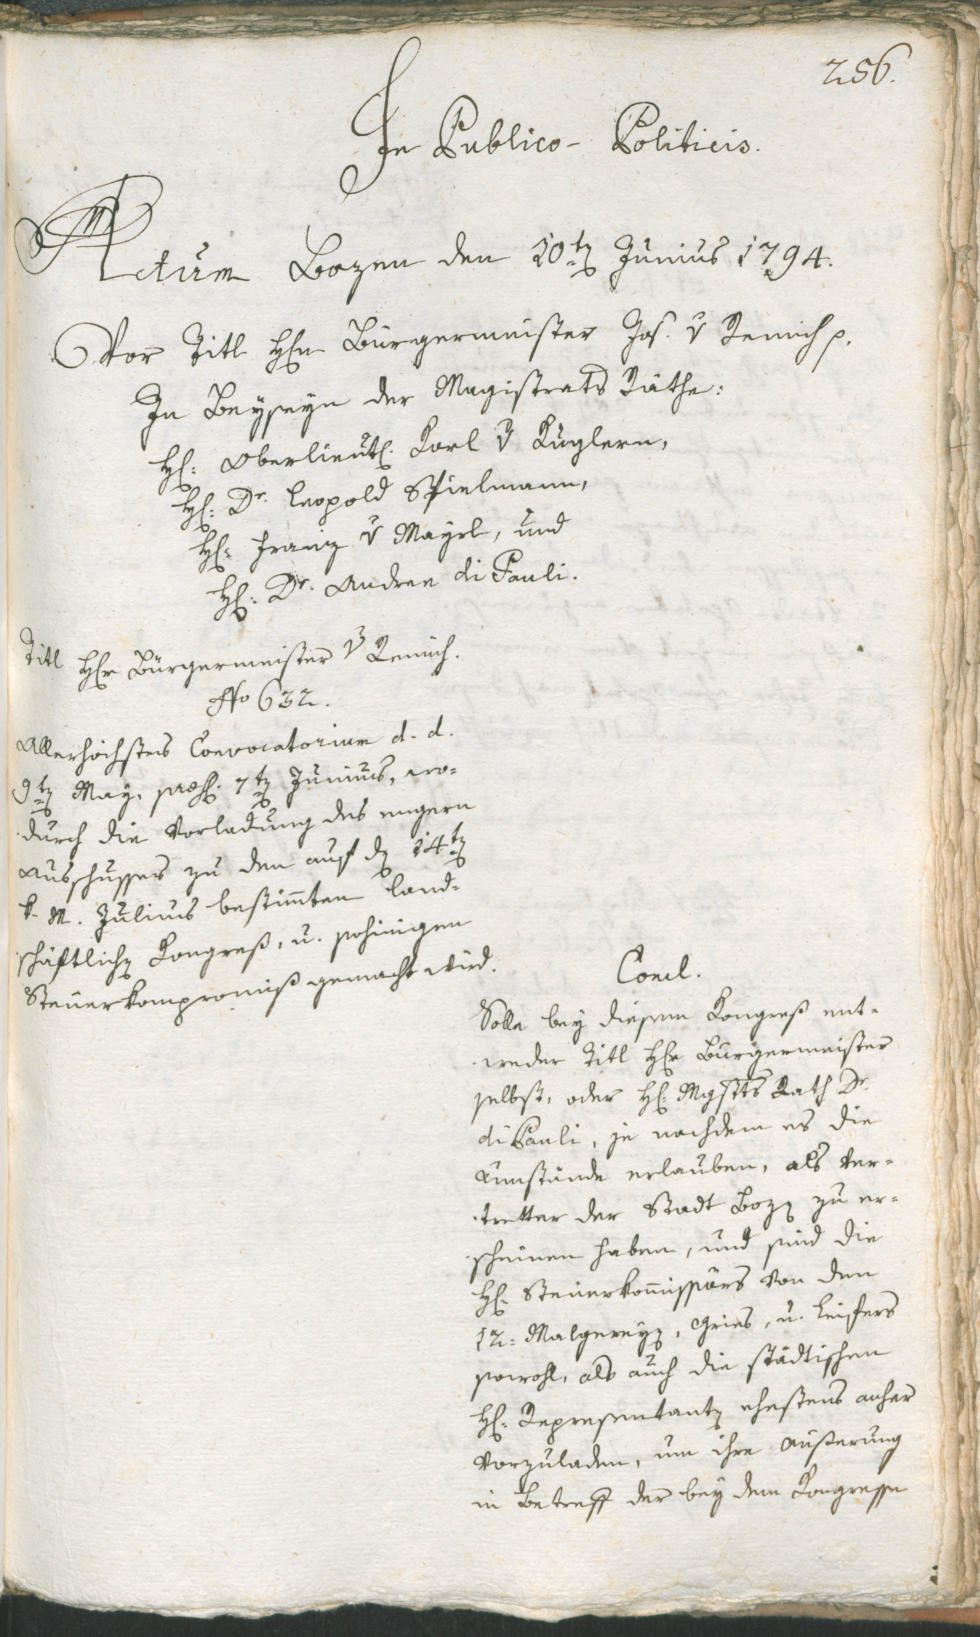 256.
In Publico-Politicis.
Actum Bozen den 10tn Junius 1794.
Vor Titl Hrn Bürgermeister Jos. v Remich p.
In Beyseyn der Magistrats Räthe:
H: Oberlieut. Karl v Küglern,
H: Dr. Leopold Spielmann,
H: Franz v Mayrl, und
H: Dr. Andree di Pauli.
Titl Hr Bürgermeister v Remich.
No 632.
Allerhöchstes Convocatorium d. d.
9tn May, præs. 7tn Junius, wo-
durch die Vorladung des engern
Ausschusses zu den auf dn 14tn
k. M. Julius bestimten land-
schäftlichn Kongreß, u. sohinigen
Steuerkompromiß gemacht wird.
Concl.
Solle bey diesem Kongreß ent-
weder Titl Hr Bürgermeister
selbst, oder H: Mgstts Rath Dr.
di Pauli, je nachdem es die
Umstände erlauben, als Ver-
tretter der Stadt Bozn zu er-
scheinen haben, und sind die
H: Steuerkomissärs von den
12= Malgreyn, Gries, u. Leifers
sowohl, als auch die städtischen
H: Representantn ehestens anher
vorzuladen, um ihre Äußerung
in Betreff der bey dem Kongresse